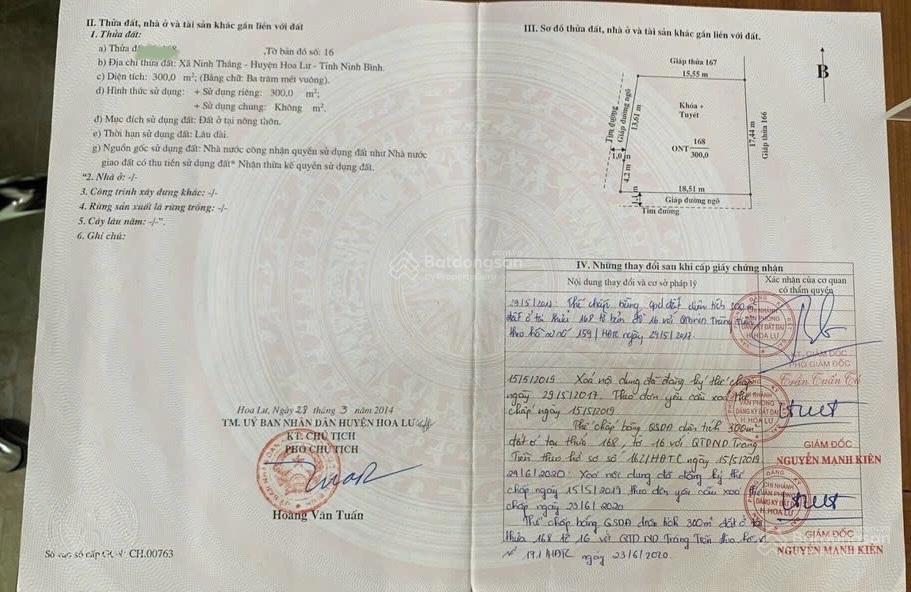 II. Thửa đất, nhà ở và tài sản khác gắn liền với đất
1. Thửa đất:
a) Thửa
,Tờ bản đồ số: 16
b) Địa chỉ thửa đất: Xã Ninh Thắng - Huyện Hoa Lư - Tỉnh Ninh Bình.
c) Diện tích: 300,0 m²; (Bằng chữ: Ba trăm mét vuông).
d) Hình thức sử dụng: + Sử dụng riêng: 300.0 m²;
+ Sử dụng chung: Không m².
đ) Mục đích sử dụng đất: Đất ở tại nông thôn.
e) Thời hạn sử dụng đất: Lâu dài.
g) Nguồn gốc sử dụng đất: Nhà nước công nhận quyền sử dụng đất như Nhà nước
giao đất có thu tiền sử dụng đất* Nhận thừa kế quyền sử dụng đất.
"2. Nhà ở: -/-
3. Công trình xây dựng khác: -/-
4. Rừng sản xuất là rừng trồng: -/-
5. Cây lâu năm: -/-".
6. Ghi chú:
Hoa Lư, Ngày 28 tháng 3 năm 2014
TM. UỶ BAN NHÂN DÂN HUYỆN HOA LƯ
KT. CHỦ TỊCH
PHÓ CHỦ TỊCH
Hoàng Văn Tuấn
Số vào sổ cấp GCN: CH.00763
III. Sơ đồ thửa đất, nhà ở và tài sản khác gắn liền với đất.
B
Giáp thửa 167
15,55 m
Tim đường
Giáp đường ngõ
13,61 m
Khóa +
Tuyết
17,44 m
Giáp thửa 166
ONT 168
300,0
1,0 m
4.2 m
18,51 m
Giáp đường ngõ
Tim đường
Batdongsan
by PropertyGuru
IV. Những thay đổi sau khi cấp giấy chứng nhận
Nội dung thay đổi và cơ sở pháp lý
Xác nhận của cơ quan
có thẩm quyền
29/5/2017: Thế chấp bằng qsd đất diện tích 300m²
đất ở tại thửa 168 tờ bản đồ 16 với QTDND Tràng Tiến
theo hồ sơ số 159/HĐTC ngày 29/5/2017.
CHI NHÁNH
VĂN PHÒNG
ĐĂNG KÝ ĐẤT ĐAI
H.HOA LƯ
KT. GIÁM ĐỐC
PHÓ GIÁM ĐỐC
Trần Tuấn
15/5/2019 Xoá nội dung đã đăng ký thế chấp
ngày 29/5/2017. Theo đơn yêu cầu xoá thế
chấp ngày 15/5/2019
Thế chấp bằng QSDĐ diện tích 300m²
đất ở tại thửa 168, tờ 16 với QTDND Tràng
Tiến theo hồ sơ số 162/HĐTC ngày 15/5/2019
CHI NHÁNH
VĂN PHÒNG
ĐĂNG KÝ ĐẤT ĐAI
H.HOA LƯ
GIÁM ĐỐC
NGUYỄN MẠNH KIÊN
29/6/2020: Xoá nội dung đã đăng ký thế
chấp ngày 15/5/2019 theo đơn yêu cầu xoá thế
chấp ngày 23/6/2020
Thế chấp bằng QSDĐ diện tích 300m² đất ở tại
thửa 168 tờ 16 với QTDND Tràng Tiến theo hồ sơ
số 191/HĐTC ngày 23/6/2020.
CHI NHÁNH
VĂN PHÒNG
ĐĂNG KÝ ĐẤT ĐAI
H.HOA LƯ
GIÁM ĐỐC
NGUYỄN MẠNH KIÊN